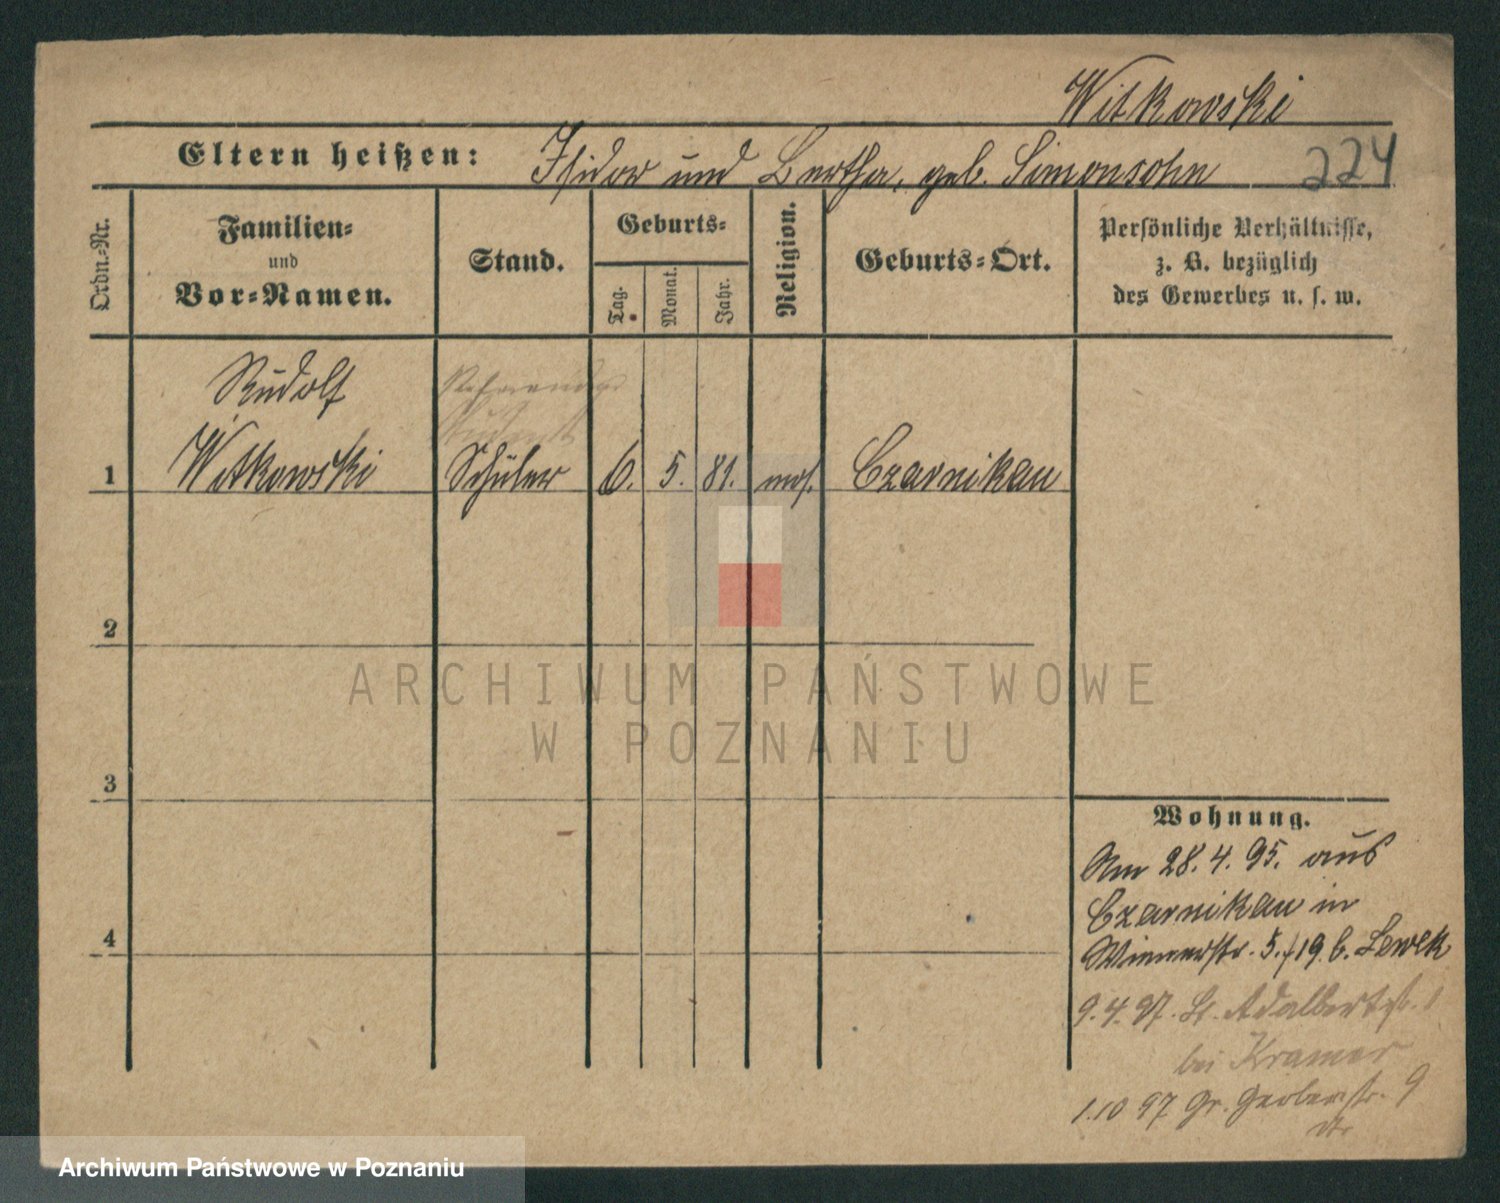 Witkowski
Eltern heißen: Isidor und Bertha, geb. Simonsohn 224
Ordn.-Nr.
Familien-
und
Vor-Namen.
Stand.
Geburts-
Tag.
Monat.
Jahr.
Religion.
Geburts-Ort.
Persönliche Verhältnisse,
z. B. bezüglich
des Gewerbes u. s. w.
Rudolf
Referendar
Student
1 Witkowski Schüler 6. 5. 81. mos. Czarnikau
2
3
4
Wohnung.
Am 28.4.95. aus
Czarnikau in
Wienerstr. 5./19 b. Lewek
9.4.97. St. Adalbertstr. 1
bei Kramer
1.10 97 Gr. Gerberstr. 9
ARCHIWUM PAŃSTWOWE
W POZNANIU
Archiwum Państwowe w Poznaniu